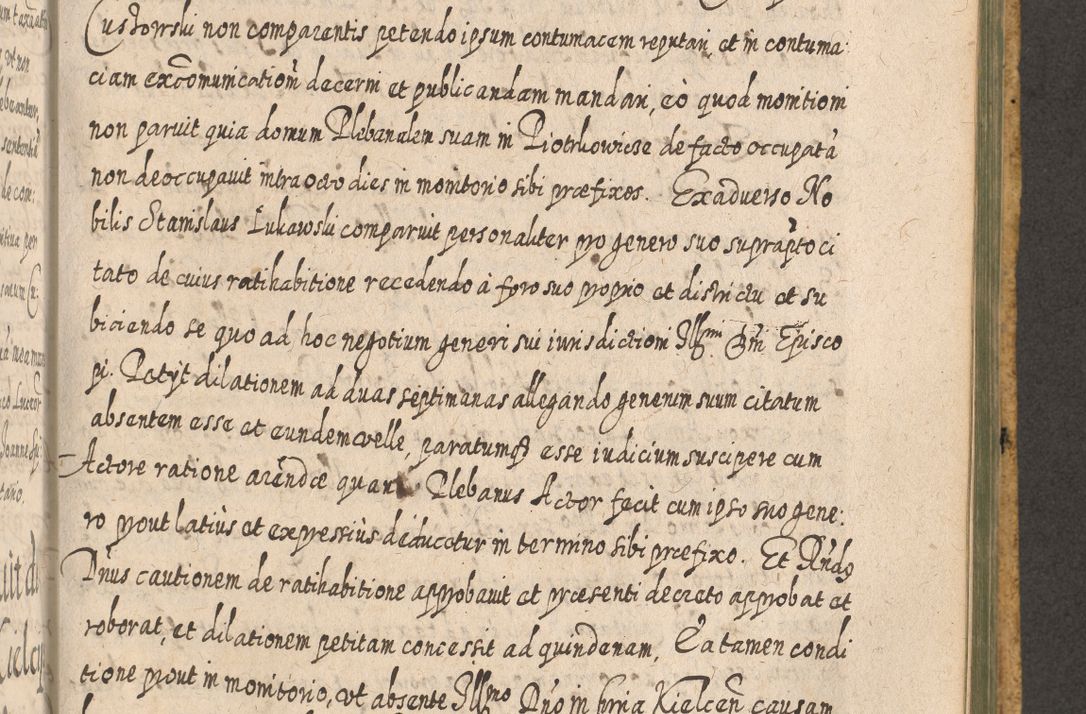 Custowski non comparentis petendo ipsum contumacem reputari, et in contuma:
ciam excõmunicationẽ decerni et publicandam mandari, eò quod monitioni
non paruit quia domum Plebanalem suam in Piotrkowicze de facto occupatã
non deoccupauit intra octo dies in monitorio sibi præfixos. Exaduerso No
bilis Stanislaus Łukawski comparuit personaliter pro genero suo suprapto ci
tato de cuius ratihabitione recedendo à foro suo proprio et districtu et su
biiciendo se quo ad hoc negotium generi sui iurisdictioni Illmi Dni Episco
pi. Petÿt dilationem ad duas septimanas allegando generum suum citatum
absentem esse et eundem velle, paratumq esse iudicium suscipere cum
Actore ratione arendæ quam Plebanus Actor fecit cum ipso suo gene:
ro prout latiùs et expressiùs deducetur in termino sibi præfixo. Et Rndg
Dnus cautionem de ratihabitione approbauit et præsenti decreto approbat et
roborat, et dilationem petitam concessit ad quindenam, Ea tamen condi
tione prout in monitorio, vt absente Illmo Dño in Kielceñ causam